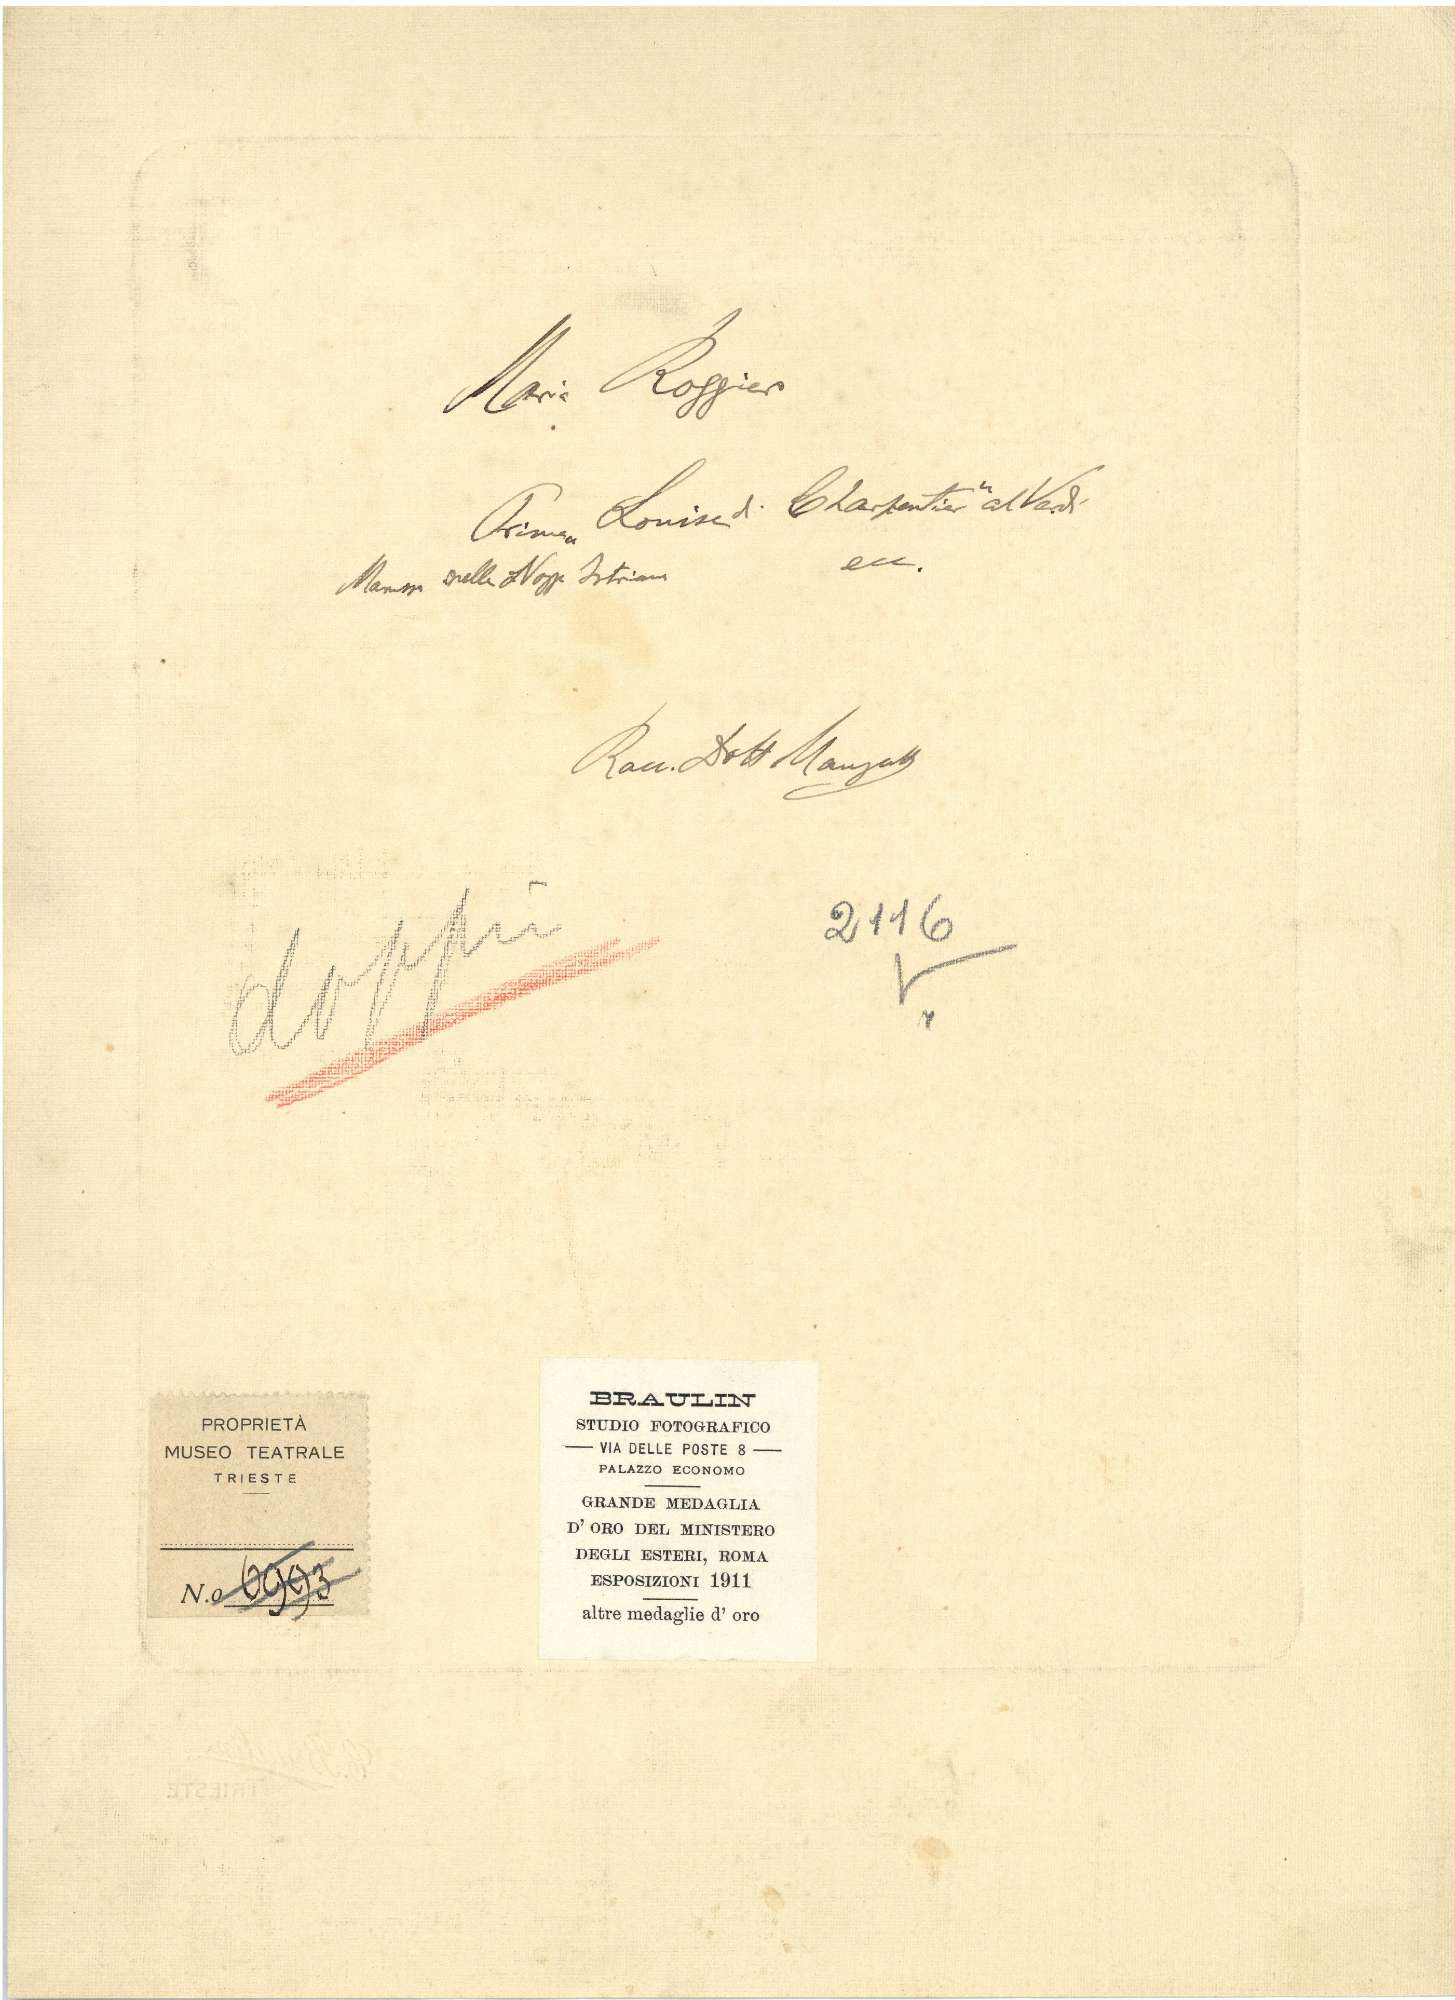 Maria Roggiero
Prima „Louise di Charpentier" al Verdi
ecc.
Marussa nelle Nozze Istriane
Racc. Dott
doppii
2116
PROPRIETÀ
MUSEO TEATRALE
TRIESTE
N.o 6993
BRAULIN
STUDIO FOTOGRAFICO
— VIA DELLE POSTE 8 —
PALAZZO ECONOMO
GRANDE MEDAGLIA
D' ORO DEL MINISTERO
DEGLI ESTERI, ROMA
ESPOSIZIONI 1911
altre medaglie d' oro
TRIESTE